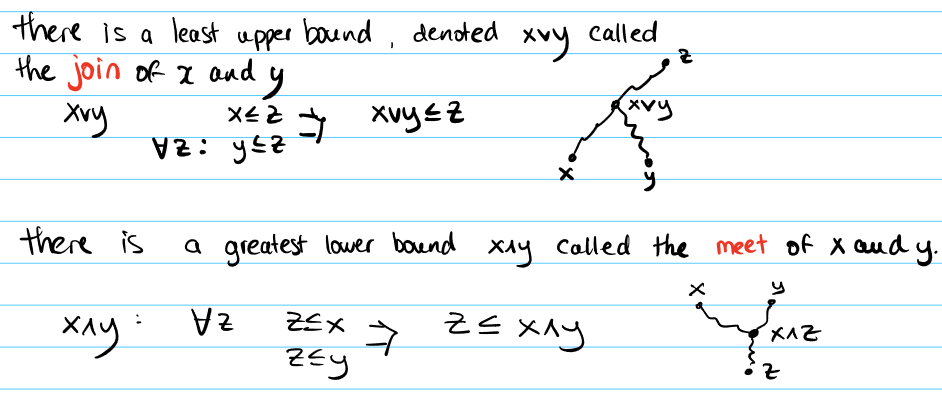 there is a least upper bound, denoted x∨y called
the join of x and y
x∨y x≤z ⇒ x∨y≤z
∀z: y≤z
z
x∨y
x
y
there is a greatest lower bound x∧y called the meet of x and y.
x∧y: ∀z z≤x ⇒ z≤x∧y
z≤y
x y
x∧z
z